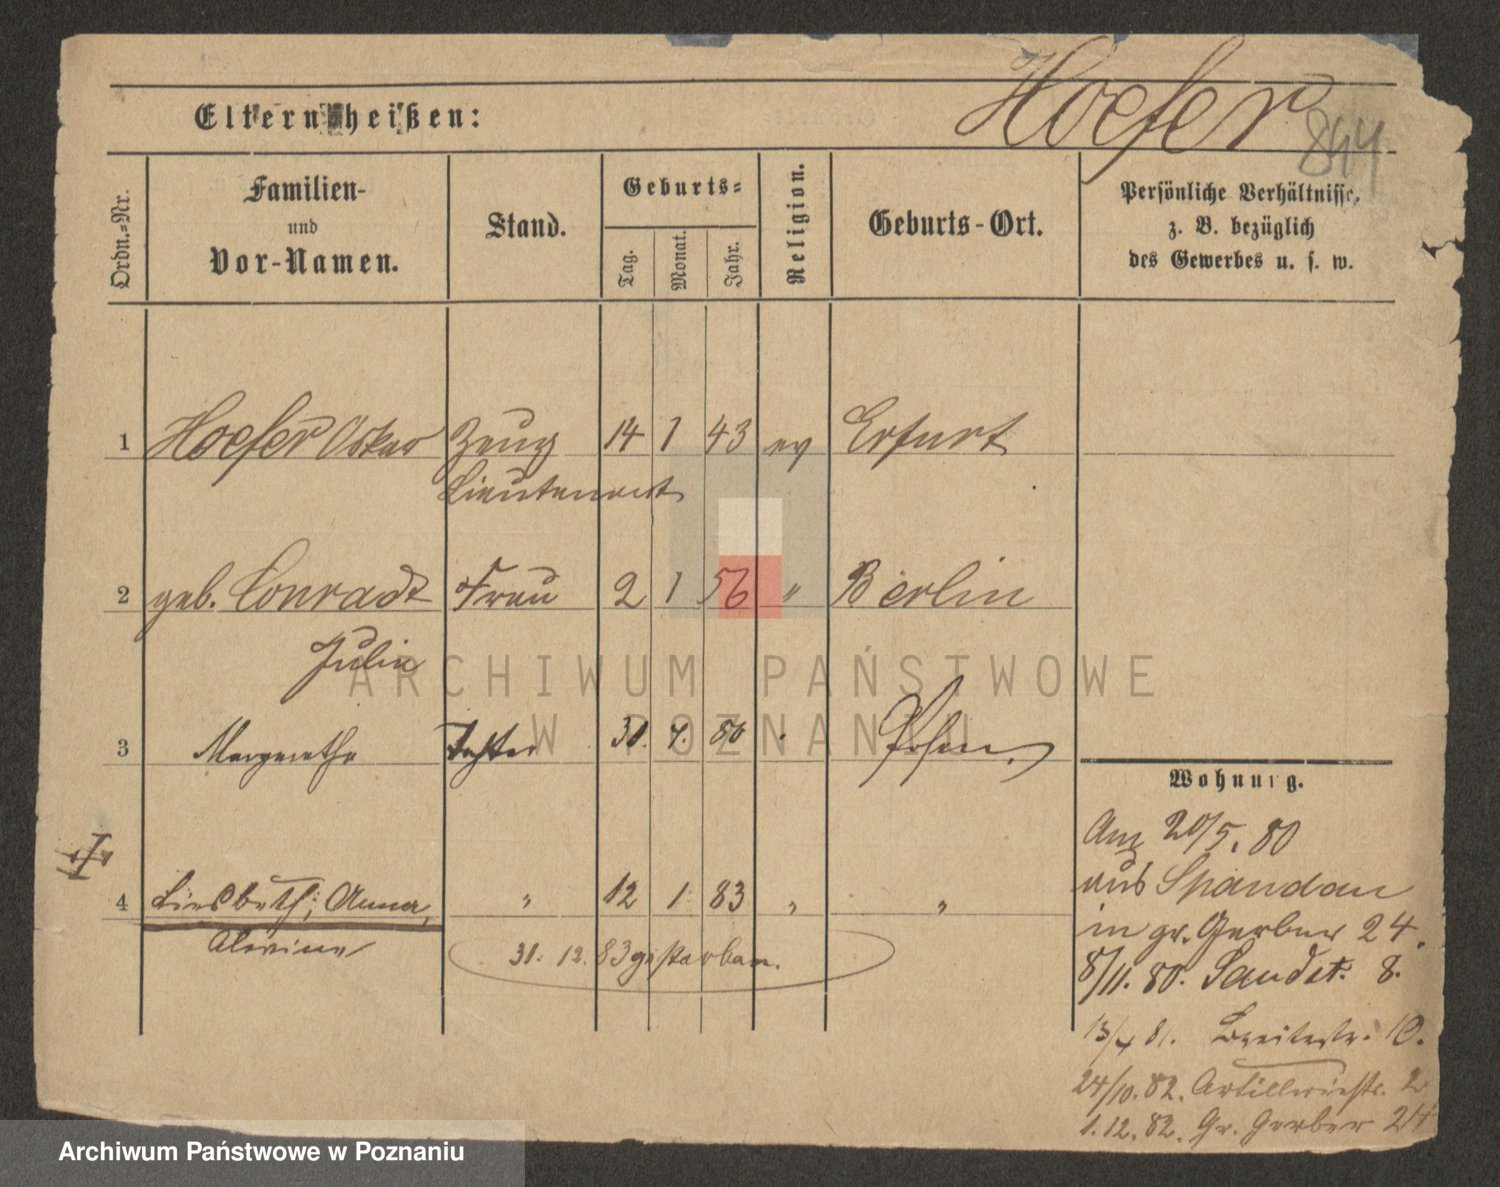 Hoefer
844
Eltern heißen:
Ordn.-Nr.
Familien-
und
Vor-Namen.
Stand.
Geburts-
Tag.
Monat.
Jahr.
Religion.
Geburts-Ort.
Persönliche Verhältnisse,
z. B. bezüglich
des Gewerbes u. s. w.
1 Hoefer Oskar Zeug 14 1 43 ev Erfurt
Lieutenant
2 geb. Conradt Frau 2 1 56 " Berlin
Julie
3 Margarethe Tochter 31. 7. 80 Posen.
4 Liesbeth, Anna, " 12 1 83 " "
31. 12. 83 gestorben.
Wohnung.
Am 20/5. 80
aus Spandau
in gr. Gerber 24.
8/11. 80. Sandst. 8.
13/4 81. Breitestr. 10.
24/10. 82. Artilleriestr. 2
1. 12. 82. Gr. Gerber 24
ARCHIWUM PAŃSTWOWE
W POZNANIU
Archiwum Państwowe w Poznaniu